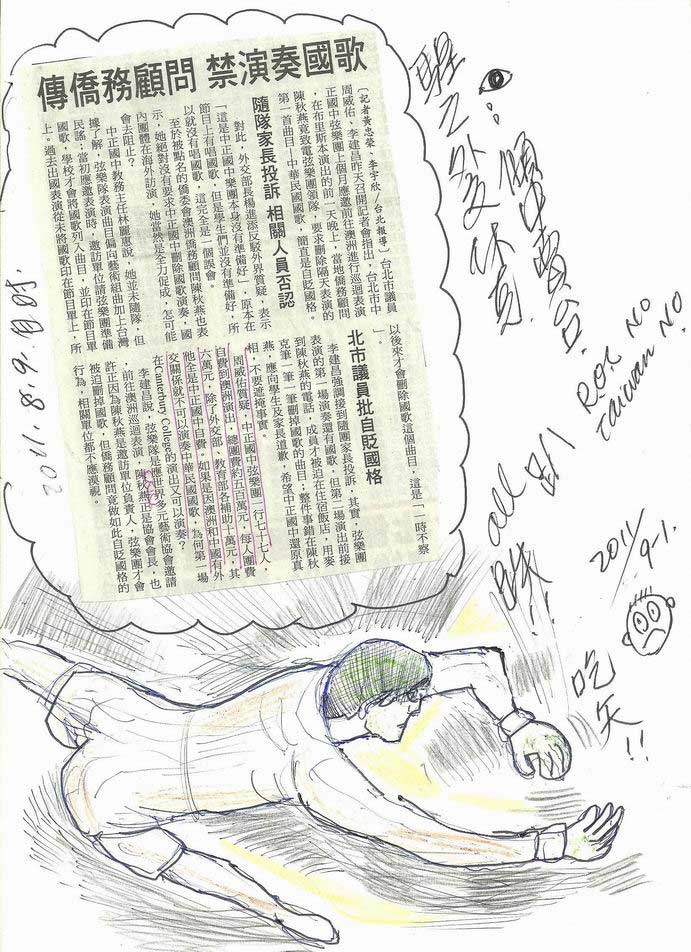 傳僑務顧問 禁演奏國歌
〔記者黃忠榮、李宇欣／台北報導〕台北市議員
周威佑、李建昌昨天召開記者會指出，台北市中
正國中弦樂團上個月應邀前往澳洲進行巡迴表演
，在布里斯本演出的前一天晚上，當地僑務顧問
陳秋燕竟致電弦樂團領隊，要求刪除隔天表演的
第一首曲目，中華民國國歌，簡直是自貶國格。
隨隊家長投訴 相關人員否認
對此，外交部長楊進添反駁外界質疑，表示
「這是中正國中樂團本身沒有準備好」，原本在
節目上有唱國歌，但是學生們並沒有準備好，所
以就沒有唱國歌，這完全是一個誤會。
至於被點名的僑委會澳洲僑務顧問陳秋燕也表
示，她絕對沒有要求中正國中刪除國歌演奏，國
內團體在海外訪演，她當然是全力促成，怎可能
會去阻止？
中正國中教務主任林麗惠說，她並未隨隊，但
據了解，弦樂隊表演曲目偏向藝術組曲加上台灣
民謠；當初應邀表演時，邀訪單位請弦樂團準備
國歌，學校才會將國歌列入曲目，並印在節目單
上。過去出國表演從未將國歌印在節目單上，所
以後來才會刪除國歌這個曲目，這是「一時不察
」。
北市議員批自貶國格
李建昌強調接到隨團家長投訴，其實，弦樂團
表演的第一場演奏還有國歌，但第一場演出前接
到陳秋燕的電話，成員才被迫在住宿飯店，用麥
克筆一筆一筆刪掉國歌的曲目；整件事錯在陳秋
燕，應向學生及家長道歉，希望中正國中還原真
相，不要遮掩事實。
周威佑質疑，中正國中弦樂團一行七十七人，
自費到澳洲演出，總團費約五百萬元，每人團費
六萬元，除了外交部、教育部各補助十萬元，其
他全是中正國中自費。如果是因澳洲和中國有外
交關係就不可以演奏中華民國國歌，為何第一場
在Canterbury College的演出又可以演奏？
李建昌說，弦樂隊是應世界多元藝術協會邀請
，前往澳洲巡迴表演，陳秋燕正是協會會長，也
許正因為陳秋燕是邀訪單位負責人，弦樂團才會
被迫刪掉國歌，但僑務顧問竟做如此自貶國格的
行為，相關單位都不應漠視。
2011.8.9.自時.
外交休克
傾中賣台.
ROC NO
Taiwan NO.
all
2011/
9-1.
吃矢!!